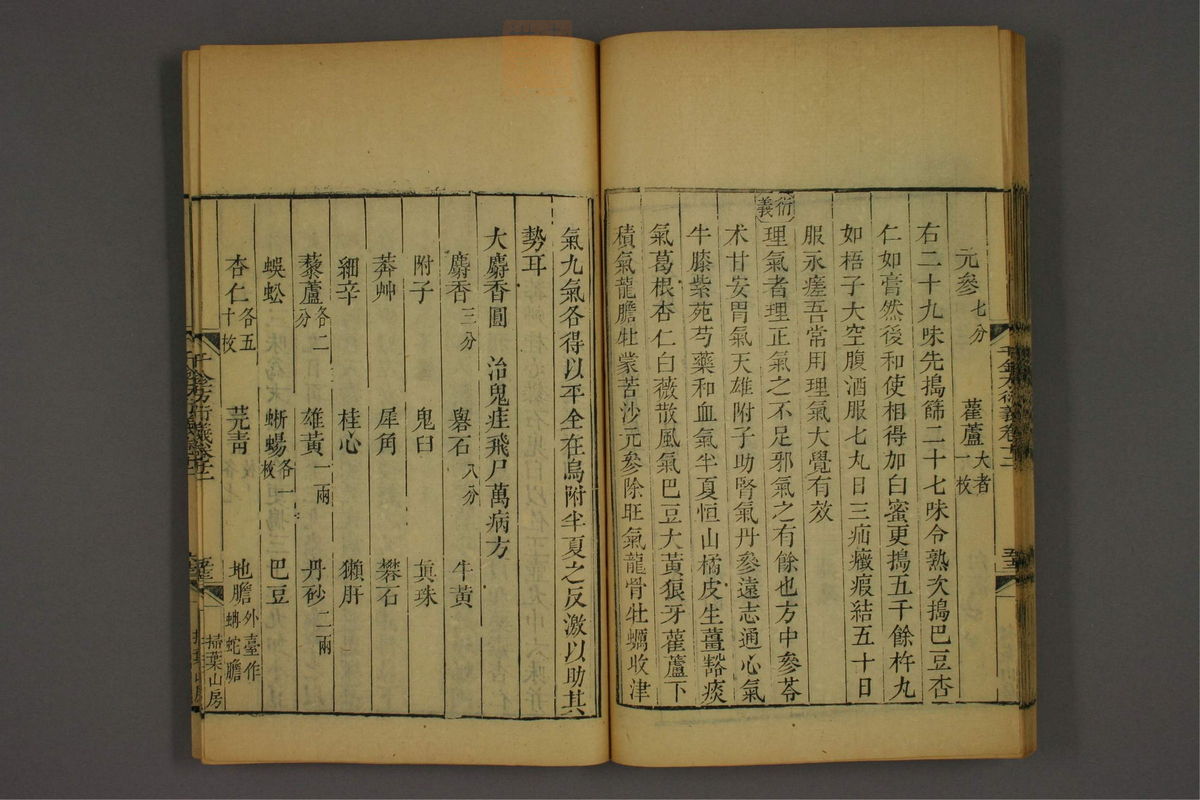 元參七分 雚蘆大者一枚
右二十九味先搗篩二十七味令熟次搗巴豆杏
仁如膏然後和使相得加白蜜更搗五千餘杵丸
如梧子大空腹酒服七丸日三疝癥瘕結五十日
服永瘥吾常用理氣大覺有效
衍義
理氣者理正氣之不足邪氣之有餘也方中參苓
朮甘安胃氣天雄附子助腎氣丹參遠志通心氣
牛膝紫苑芍藥和血氣半夏恒山橘皮生薑豁痰
氣葛根杏仁白薇散風氣巴豆大黃狼牙雚蘆下
積氣龍膽牡蒙苦沙元參除旺氣龍骨牡蠣收津
千金方衍義卷十二
氣九氣各得以平全在烏附半夏之反激以助其
勢耳
大麝香圓 治鬼疰飛尸萬病方
麝香三分 礜石八分 牛黃
附子 鬼臼 眞珠
莽艸 犀角 礬石
細辛 桂心 獺肝
藜蘆各二分 雄黃一兩 丹砂二兩
蜈蚣 蜥蜴各一枚 巴豆
杏仁各五十枚 芫青 地膽外臺作蚺蛇膽
千金方衍義卷十二
掃葉山房